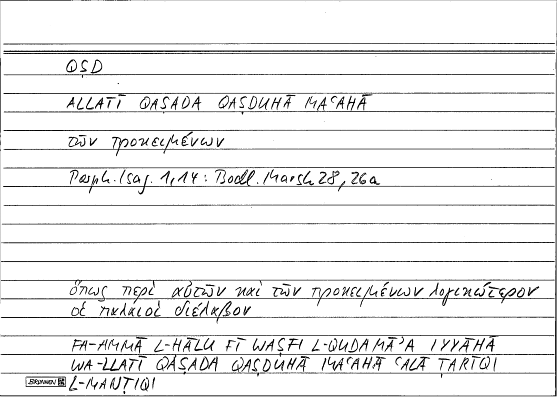 QṢD
ALLATĪ QAṢADA QAṢDUHĀ MAʿAHĀ
τῶν προκειμένων
Porph. Isag. 1,14 : Bodl. Marsh 28, 26a
ὅπως περὶ αὐτῶν καὶ τῶν προκειμένων λογικώτερον
οἱ παλαιοὶ διέλαβον
FA-AMMĀ L-ḤĀLU FĪ WAṢFI L-QUDAMĀʾA IYYĀHĀ
WA-LLATĪ QAṢADA QAṢDUHĀ MAʿAHĀ ʿALĀ ṬARĪQI
BRUNNEN L-MANṬIQI